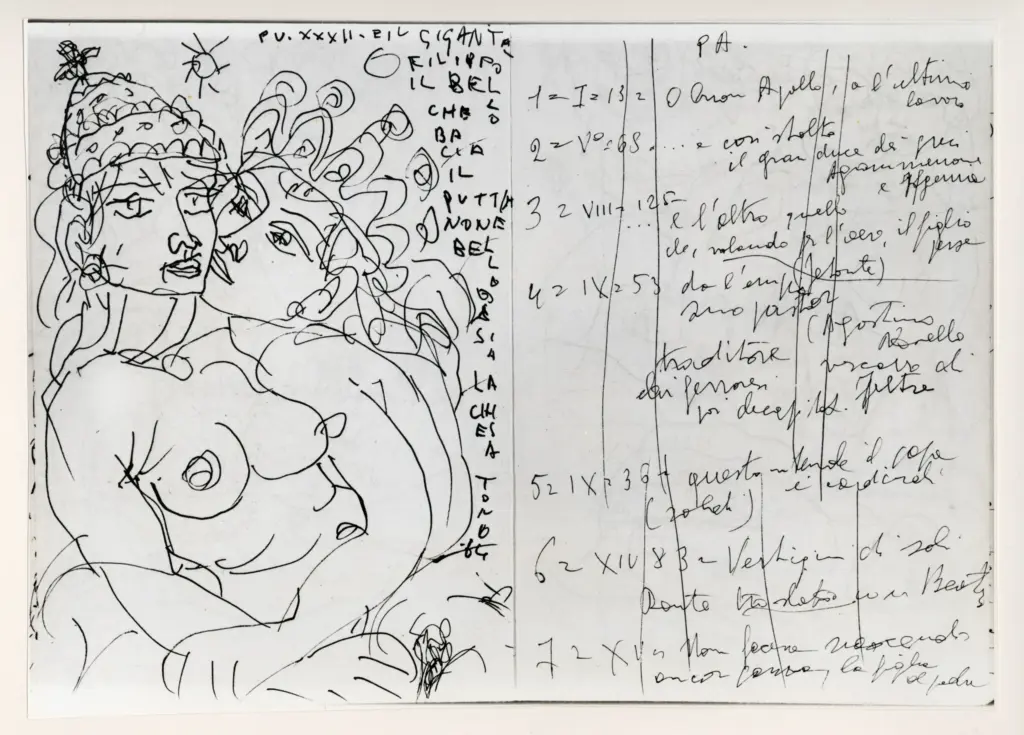 PU. XXXII. E IL GIGANTE
FILIPPO
IL BELLO
CHE
BA
CIA
IL
PUTTA
NONE
BEL
LO
OSSIA LA CHIESA
TONO
'64
PA.
1 = I = 13 = O buon Apollo, a l'ultimo
lavoro
2 = V° = 68 .... e così stolto
il gran duca dei greci
Agamennone
e Ifigenia
3 = VIII = 125 .... e l'altro quello
che, volando per l'aere, il figlio
perse
4 = IX = 53 da l'empio
suo pastor
(Agostino
Novello
traditore vescovo di
dei ferraresi Feltre
poi
5 = IX = 36 questo intende il papa
e i cardinali
6 = XIV 83 = Vestigini di soli
Dante traslato con Beat
7 = XV = Non facea nascendo
ancor paura, la figlia
al padre